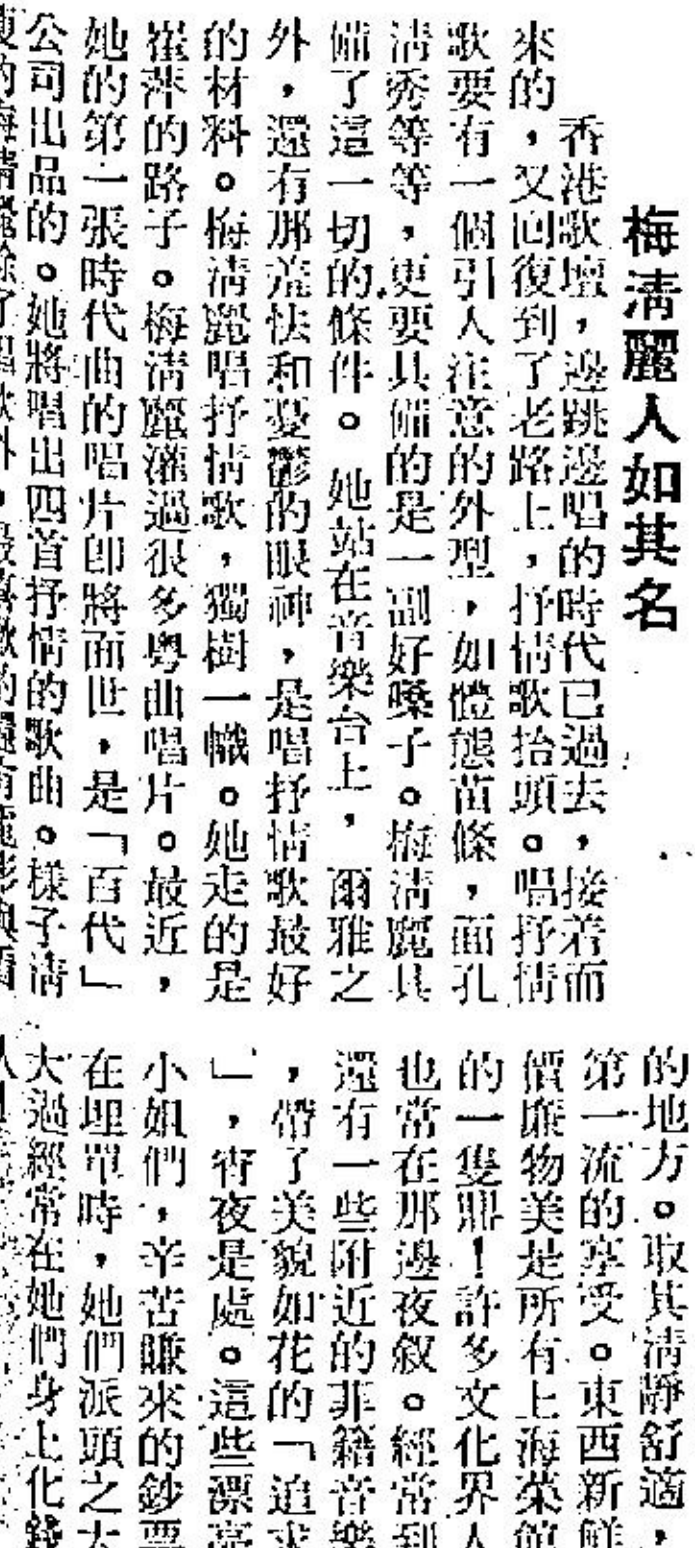 梅淸麗人如其名
香港歌壇，邊跳邊唱的時代已過去，接着而
來的，又回復到了老路上，抒情歌抬頭。唱抒情
歌要有一個引人注意的外型，如體態苗條，面孔
淸秀等等，更要具備的是一副好嗓子。梅淸麗具
備了這一切的條件。她站在音樂台上，爾雅之
外，還有那羞怯和憂鬱的眼神，是唱抒情歌最好
的材料。梅淸麗唱抒情歌，獨樹一幟。她走的是
崔萍的路子。梅淸麗灌過很多粵曲唱片。最近，
她的第一張時代曲的唱片即將面世，是「百代」
公司出品的。她將唱出四首抒情的歌曲。樣子淸
的地方。取其淸靜舒適，
第一流的享受。東西新鮮
價廉物美是所有上海菜館
的一隻鼎！許多文化界人
也常在那邊夜叙。經常到
還有一些附近的菲籍音樂
，帶了美貌如花的「追求
」，宵夜是處。這些漂亮
小姐們，辛苦賺來的鈔票
在埋單時，她們派頭之大
大過經常在她們身上化錢